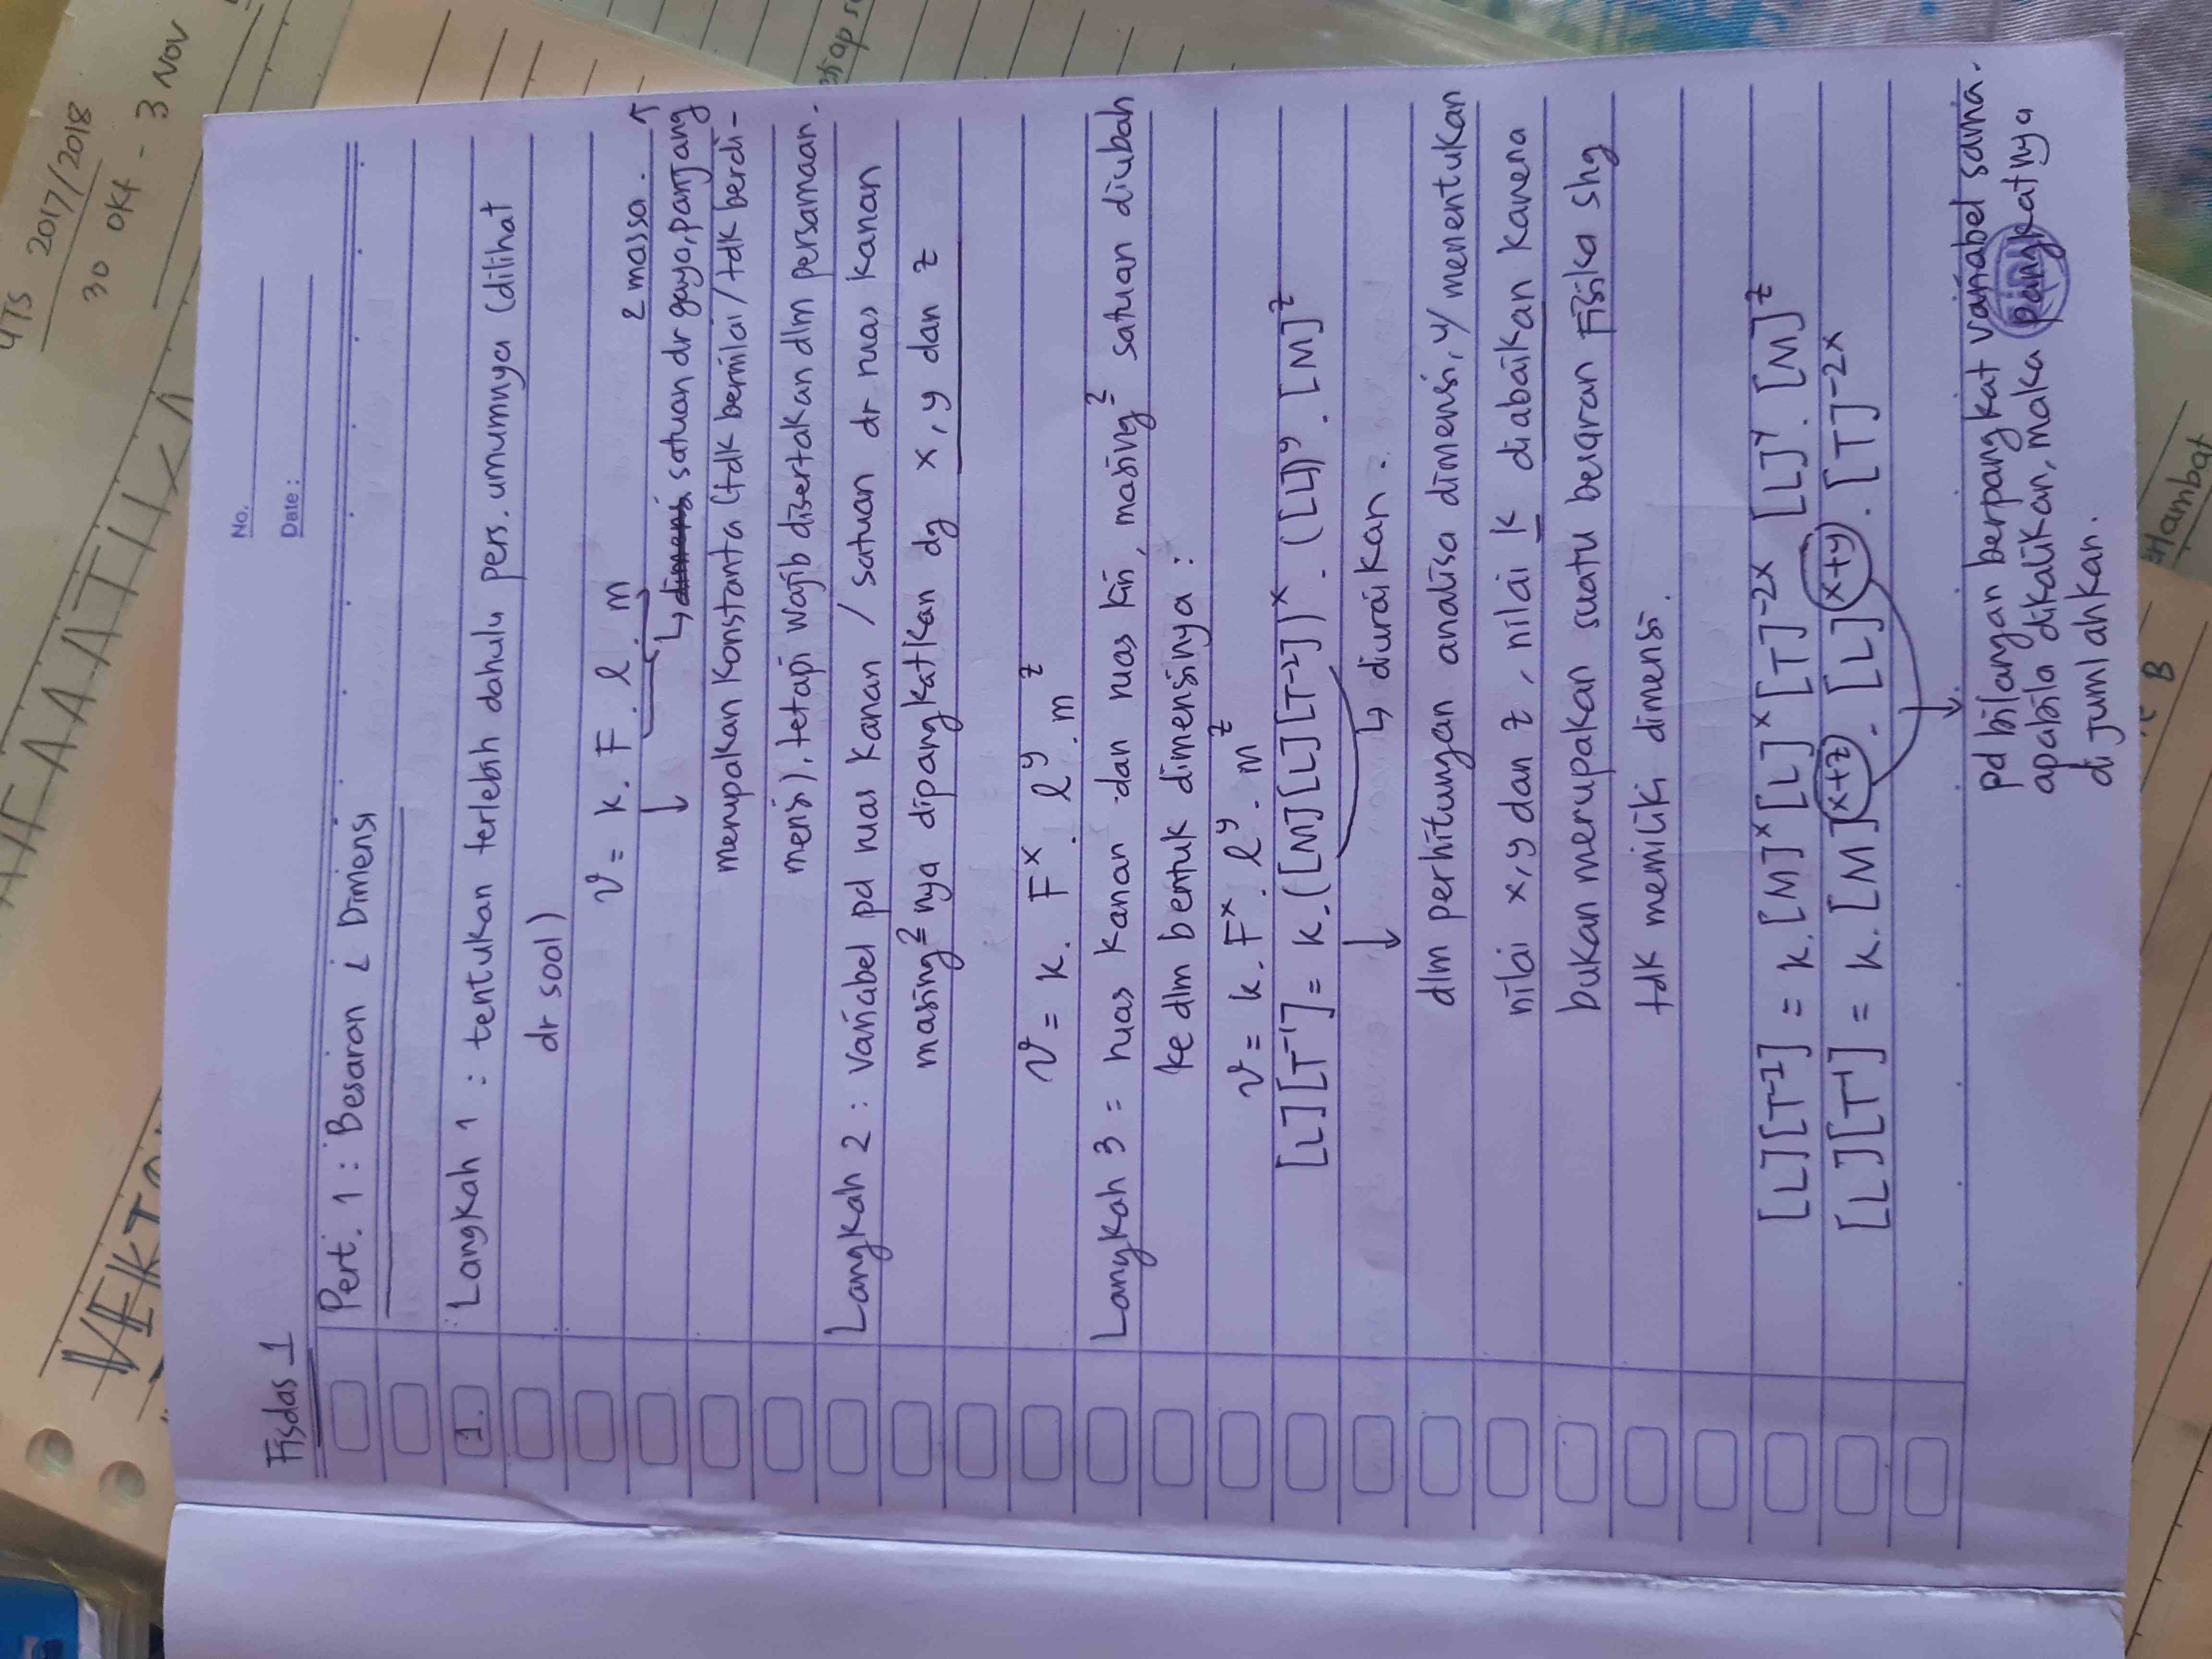 UTS 2017/2018
30 OKt - 3 NOV
No.
Date :
Fisdas 1
Pert. 1 : Besaran & Dimensi
1. Langkah 1 : tentukan terlebih dahulu pers. umumnya (dilihat
dr soal)
v = k. F. l. m
& massa.
↳ dimensi satuan dr gaya, panjang
merupakan Konstanta (tdk bernilai / tdk berdi-
mensi), tetapi wajib disertakan dlm persamaan.
Langkah 2 : Variabel pd ruas kanan / satuan dr ruas kanan
masing² nya dipangkatkan dg x, y dan z
v = k. Fˣ. lʸ. mᶻ
Langkah 3 = ruas kanan dan ruas kiri, masing² satuan diubah
ke dlm bentuk dimensinya :
v = k. Fˣ. lʸ. mᶻ
[L][T⁻¹] = k. ([M][L][T⁻²])ˣ. ([L])ʸ. [M]ᶻ
↳ diuraikan.
dlm perhitungan analisa dimensi, u/ menentukan
nilai x, y dan z, nilai k diabaikan karena
bukan merupakan suatu besaran Fisika shg
tdk memiliki dimensi.
[L][T⁻¹] = k. [M]ˣ [L]ˣ [T]⁻²ˣ [L]ʸ. [M]ᶻ
[L][T⁻¹] = k. [M]ˣ⁺ᶻ. [L]ˣ⁺ʸ. [T]⁻²ˣ
pd bilangan berpangkat variabel sama.
apabila dikalikan, maka pangkatnya
dijumlahkan.
B
Hambat